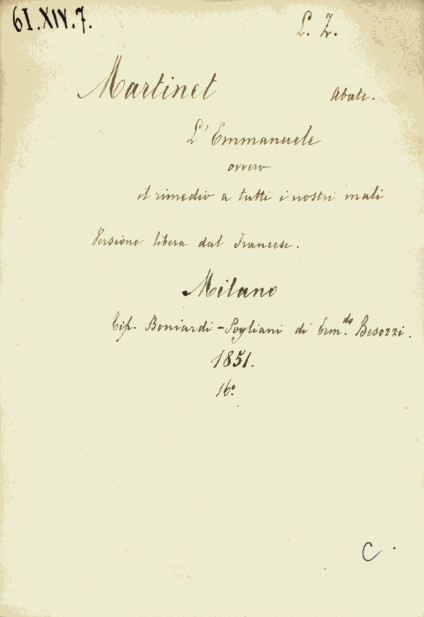 61.XIV.7.
L. Z.
Martinet Abate.
L'Emmanuele
ovvero
il rimedio a tutti i nostri mali
Versione libera dal Francese.
Milano
Tip. Boniardi-Pogliani di Erm.do Besozzi.
1851.
16º
C.